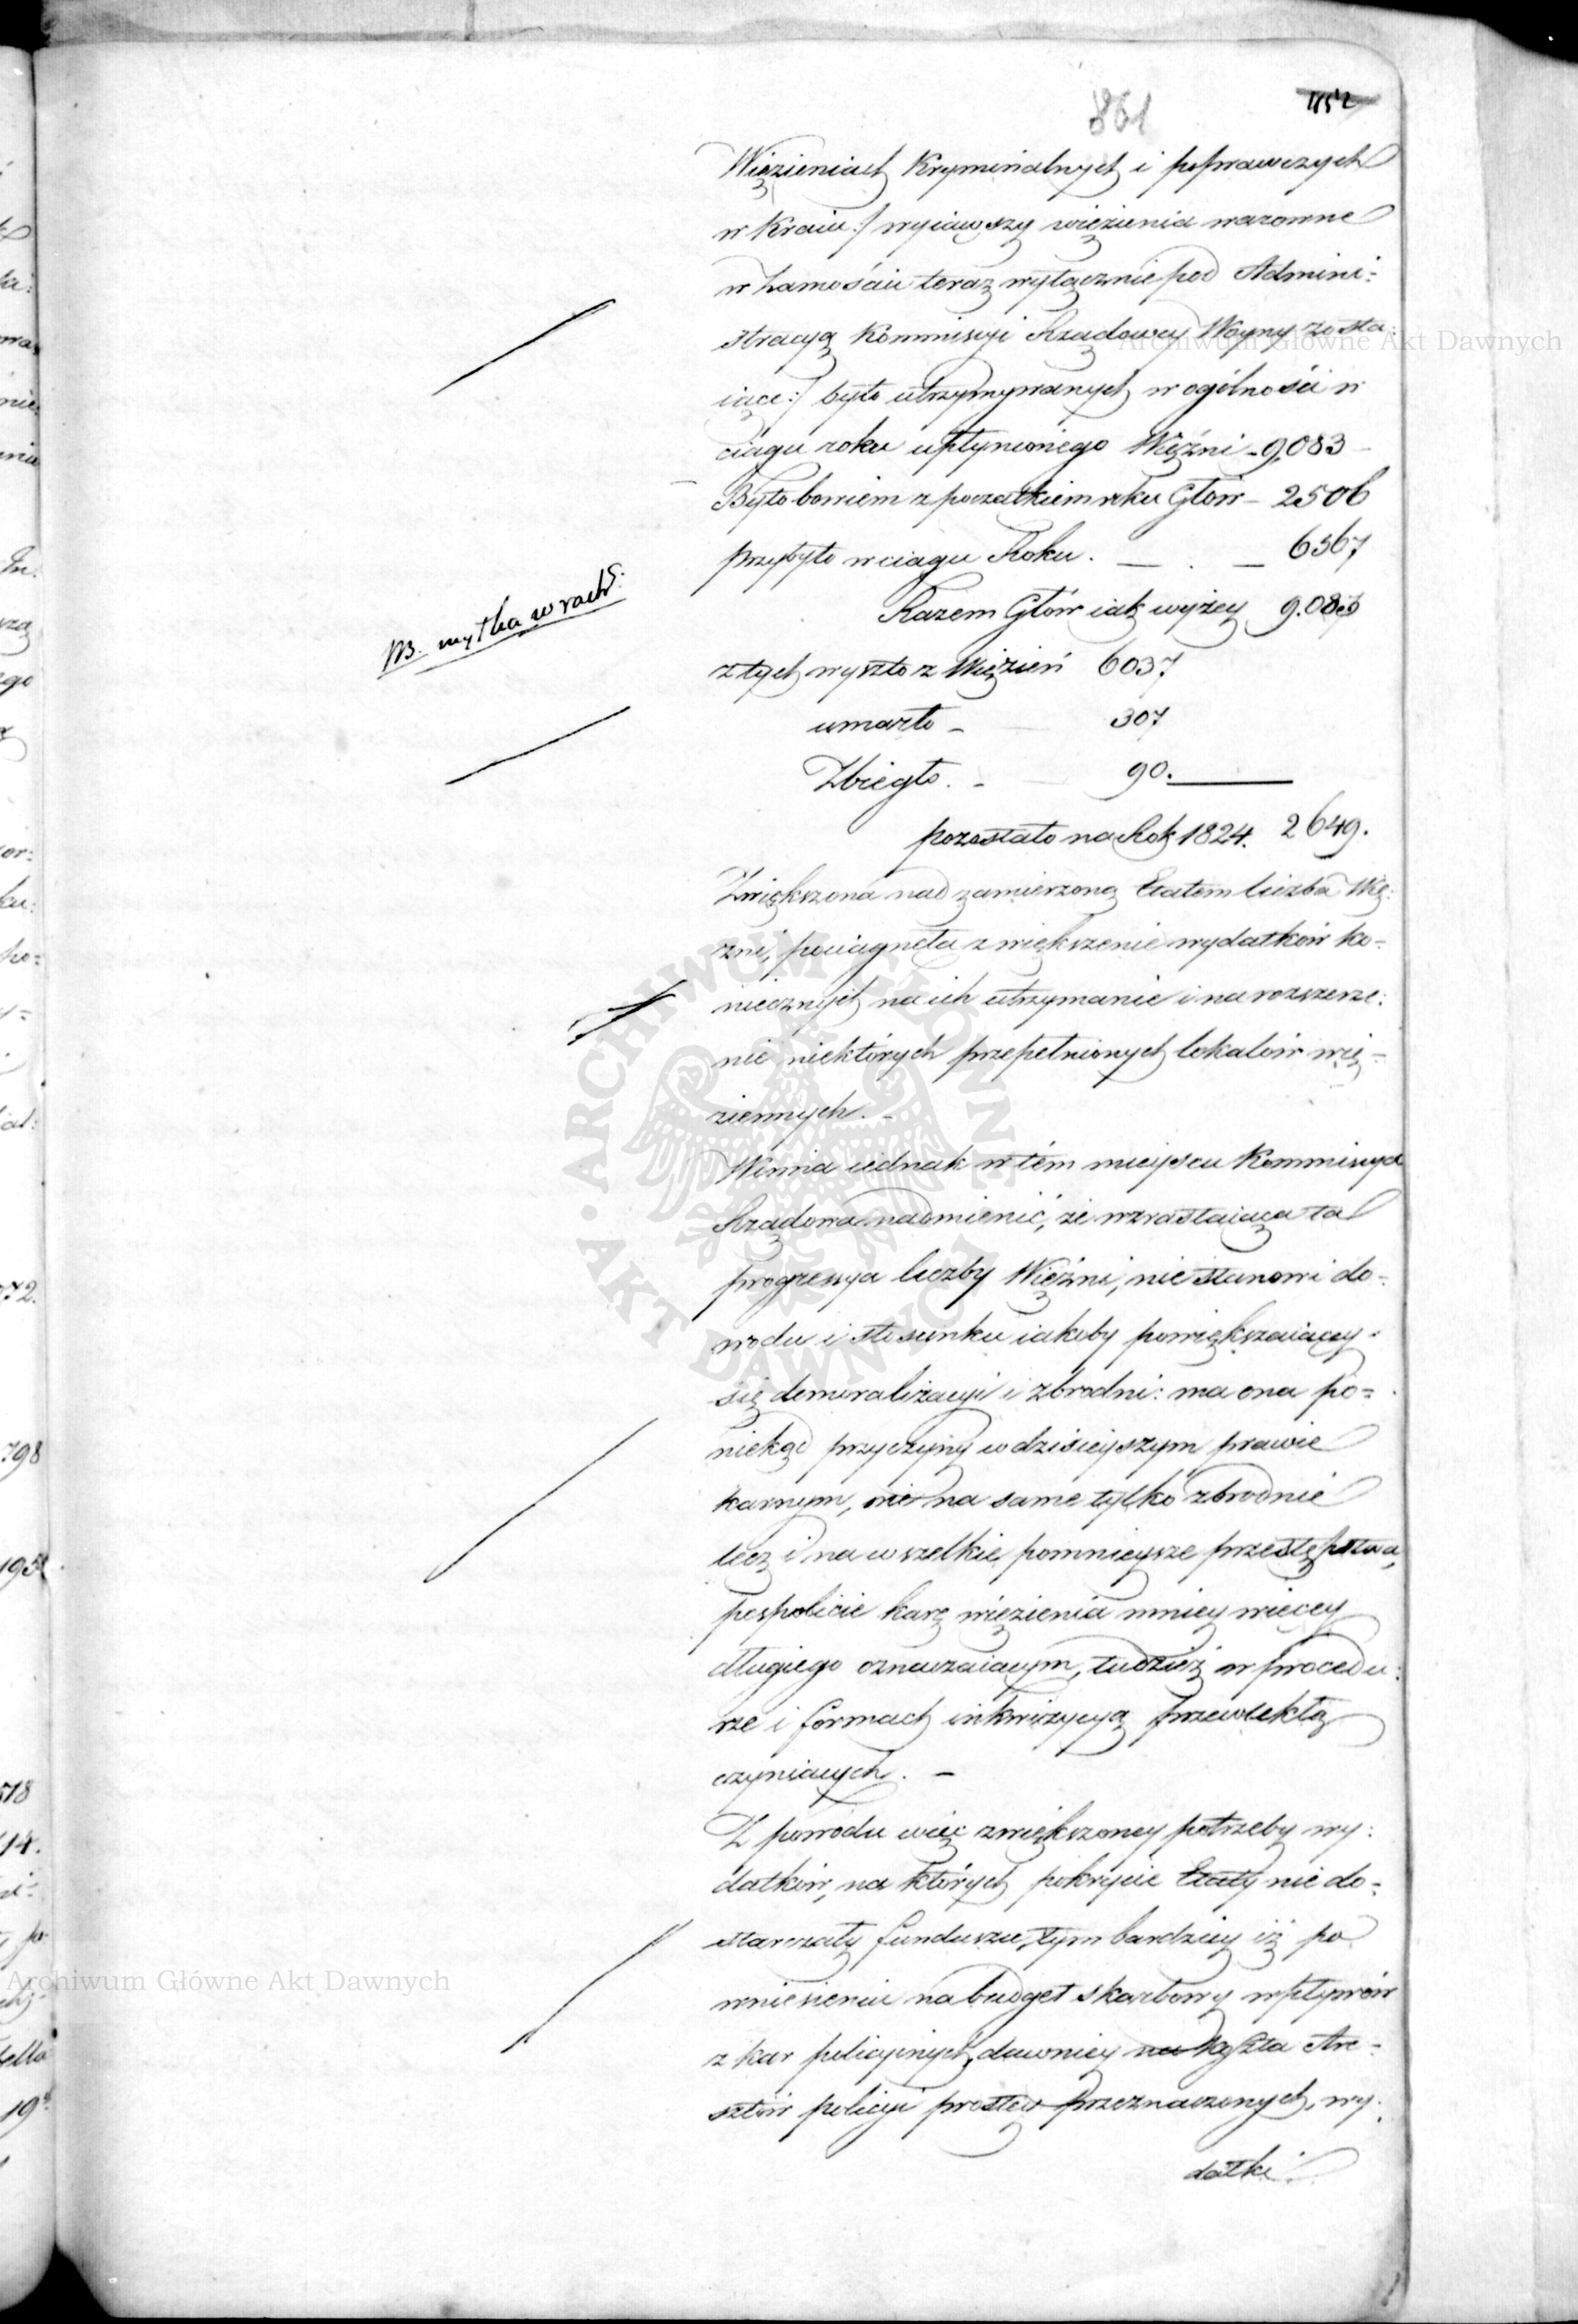 861
1152
Więzieniach Kryminalnych i poprawczych
w Kraiu :/ wyiąwszy więzienia warowne
w Zamościu teraz wyłącznie pod Admini:
stracyą Kommissyi Rządowey Woyny zosta:
iące:/ było utrzymywanych w ogólności w
ciągu roku upłynionego Więźni - 9,083 -
Było bowiem z początkiem roku Głów - 2506
przybyło w ciągu Roku. — . — 6567
Razem Głów iak wyżey 9.083
NB. myłka w rach:
z tych wyszło z Więzień 6037
umarło - 307
Zbiegło. - 90.
pozostało na Rok 1824. 2649.
Zwiększona nad zamierzoną Etatem liczba Wię:
źni, pociągnęła zwiększenie wydatków ko=
niecznych na ich utrzymanie i na rozszerze:
nie niektórych przepełnionych lokalów wię=
ziennych. -
Winna iednak w tém mieyscu Kommissya
Rządowa nadmienić, że wzrastaiąca ta
progressya liczby Więźni, nie stanowi do=
wodu i stosunku iakoby powiększaiącey
się demoralizacyi i zbrodni: ma ona po=
niekąd przyczynę w dzisieyszym prawie
karnym, nie na same tylko zbrodnie
lecz i na wszelkie pomnieysze przestępstwa,
pospolicie karę więzienia mniey więcey
długiego oznaczaiącym, tudzież w procedu:
rze i formach inkwizycyą przewlekłą
czyniących. -
Z powodu więc zwiększoney potrzeby wy:
datków, na których pokrycie Etaty nie do=
starczały funduszu, tym bardziey iż po
wniesieniu na budget skarbowy wpływów
z kar policyinych, dawniey na koszta Are=
sztów policyi prostey przeznaczonych, wy:
datki
Archiwum Główne Akt Dawnych
Archiwum Główne Akt Dawnych
ARCHIWUM GŁÓWNE
AKT DAWNYCH